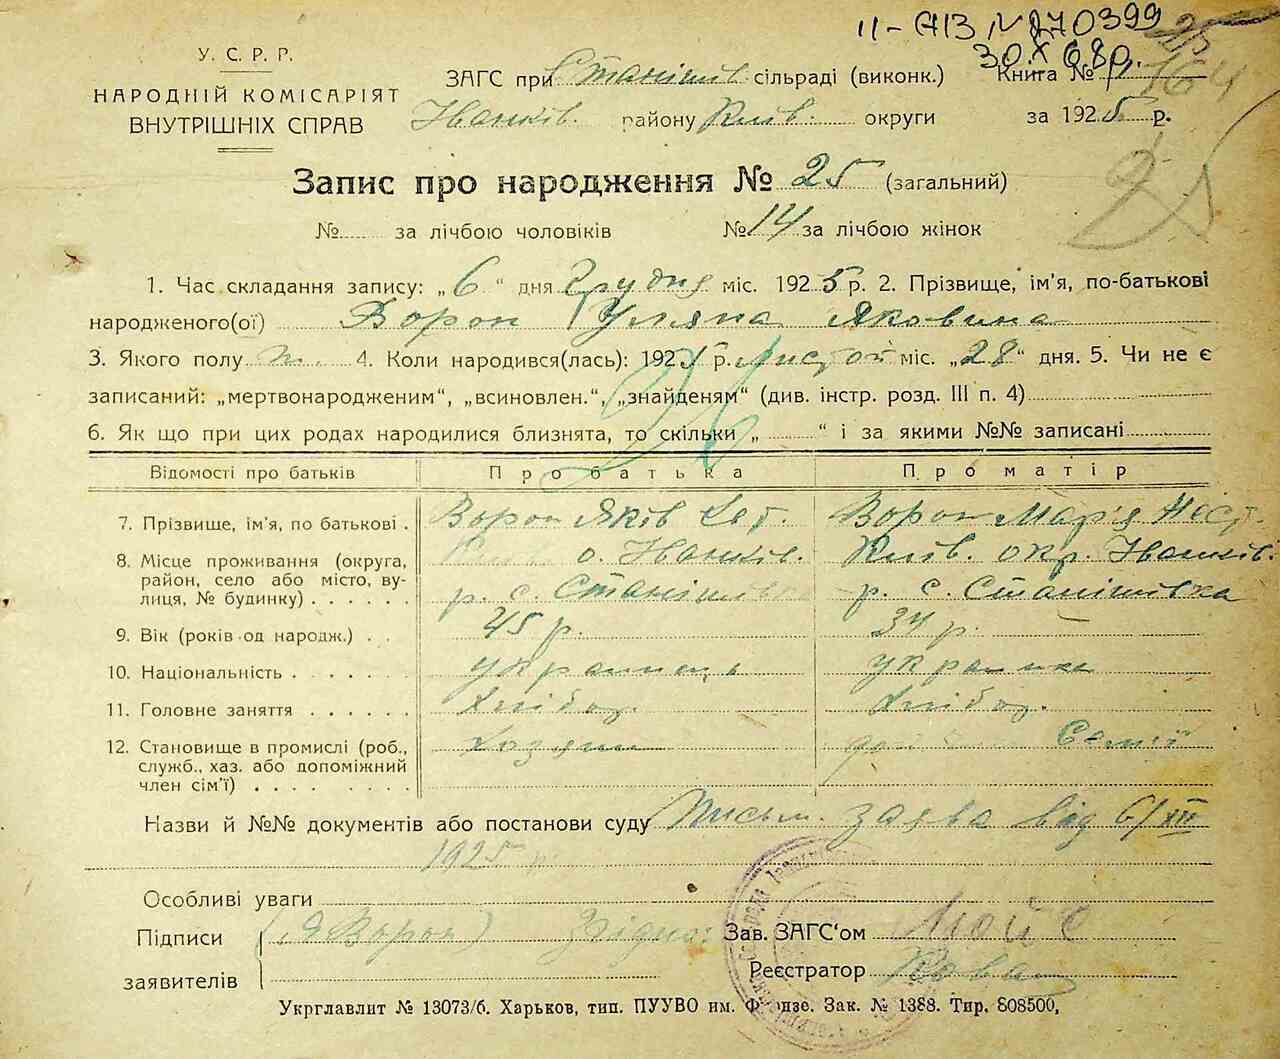 II-АІЗ № 270399
30.X 68р.
У. С. Р. Р.
НАРОДНІЙ КОМІСАРІЯТ
ВНУТРІШНІХ СПРАВ
ЗАГС при Станішів. сільраді (виконк.) Книга №
Іванків. району Київ. округи за 1925 р.
Запис про народження № 25 (загальний)
25
№ за лічбою чоловіків № 14 за лічбою жінок
1. Час складання запису: „6“ дня Грудня міс. 1925 р. 2. Прізвище, ім'я, по-батькові
народженого(ої) Ворон Уляна Яковина
3. Якого полу ж. 4. Коли народився(лась): 1925 р. Листоп міс. „28“ дня. 5. Чи не є
записаний: „мертвонародженим“, „всиновлен.“, „знайденям“ (див. інстр. розд. III п. 4)
6. Як що при цих родах народилися близнята, то скільки „ “ і за якими №№ записані
Відомості про батьків Про батька Про матір
7. Прізвище, ім'я, по батькові . Ворон Яків Ворон Марія Нест.
8. Місце проживання (округа, о. Іванків. Київ. окр. Іванків.
район, село або місто, ву-
лиця, № будинку) . . . . . . р. с. Станішівка р. с. Станішівка
9. Вік (років од народж.) . . 45 р. 34 р.
10. Національність . . . . . . українець українка
11. Головне заняття . . . . . . Хлібор. Хлібор.
12. Становище в промислі (роб., Хозяин Семії
служб., хаз. або допоміжний
член сім'ї) . . . . . . . .
Назви й №№ документів або постанови суду Письм. заява від 6/XII
1925 р.
Особливі уваги
Підписи (Я Ворон) Згідно: Зав. ЗАГС'ом
заявителів Реєстратор
Укрглавлит № 13073/б. Харьков, тип. ПУУВО им. Фрунзе. Зак. № 1388. Тир. 808500,